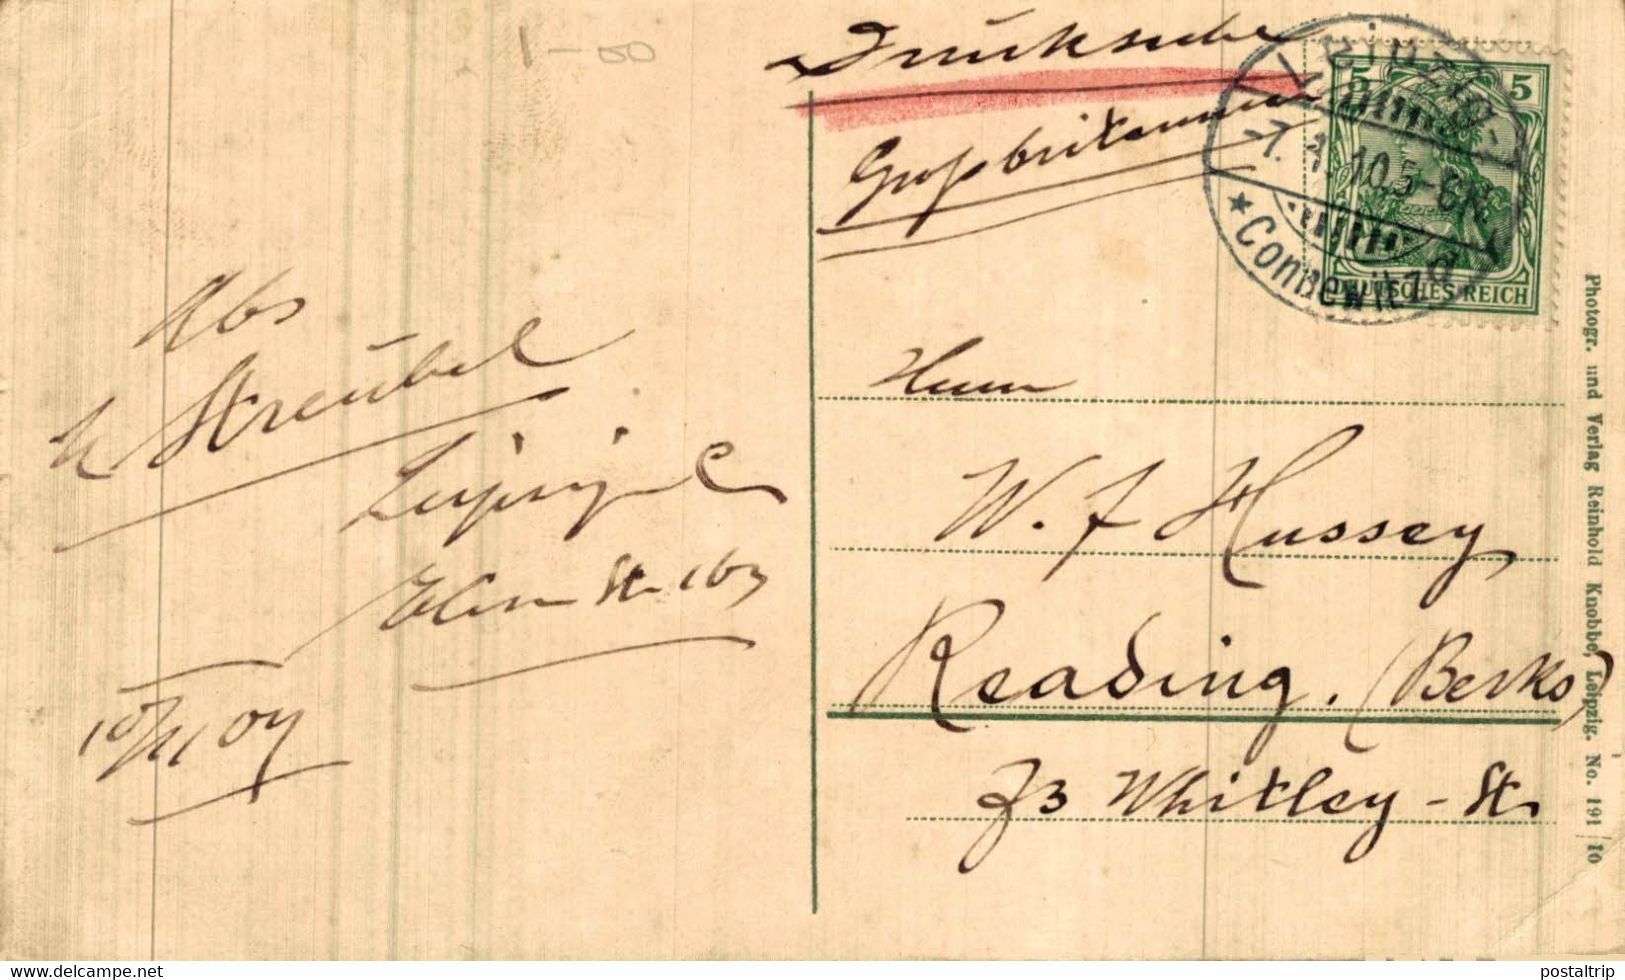 1-00
Drucksache
Grossbritannien
LEIPZIG-
-7. 1. 10. 5-6 N.
* Connewitz
5 5
DEUTSCHES REICH
Abs
Streubel
Leipzig
St. 163
Herrn
W. F Hussey
Reading. (Berks)
73 Whitley-St.
Photogr. und Verlag Reinhold Knobbe, Leipzig. No. 191/10
delcampe.net
postaltrip